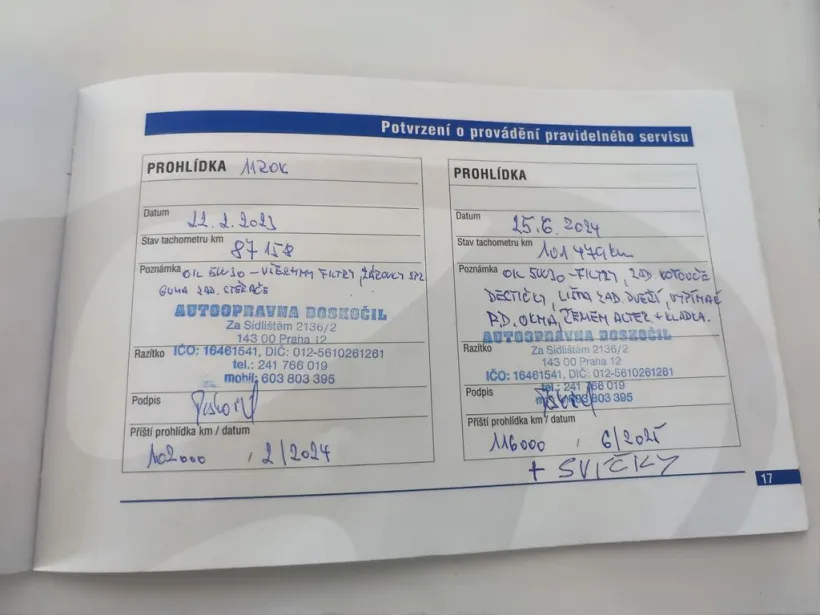 Potvrzení o provádění pravidelného servisu
PROHLÍDKA 1120K
Datum 22.2.2023
Stav tachometru km 87 158
Poznámka OIL 5W30 - VŠECHNY FILTRY, ŽÁROVKY SPZ
GUMA ZAD. STĚRAČE
AUTOOPRAVNA DOSKOČIL
Za Sídlištěm 2136/2
143 00 Praha 12
Razítko IČO: 16461541, DIČ: 012-5610261261
tel.: 241 766 019
mobil: 603 803 395
Podpis
Příští prohlídka km / datum
102000 , 2/2024
PROHLÍDKA
Datum 25.6.2024
Stav tachometru km 101 479 km
Poznámka OIL 5W30 - FILTRY, ZAD. KOTOUČE
DESTIČKY, LIŠTA ZAD. DVEŘÍ, VYPÍNAČ
P.D. OKNA, ŘEMEN ALTER. + KLADKA.
AUTOOPRAVNA DOSKOČIL
Za Sídlištěm 2136/2
Razítko 143 00 Praha 12
IČO: 16461541, DIČ: 012-5610261261
tel.: 241 766 019
Podpis 603 803 395
Příští prohlídka km / datum
116000 , 6/2025
+ SVÍČKY
17